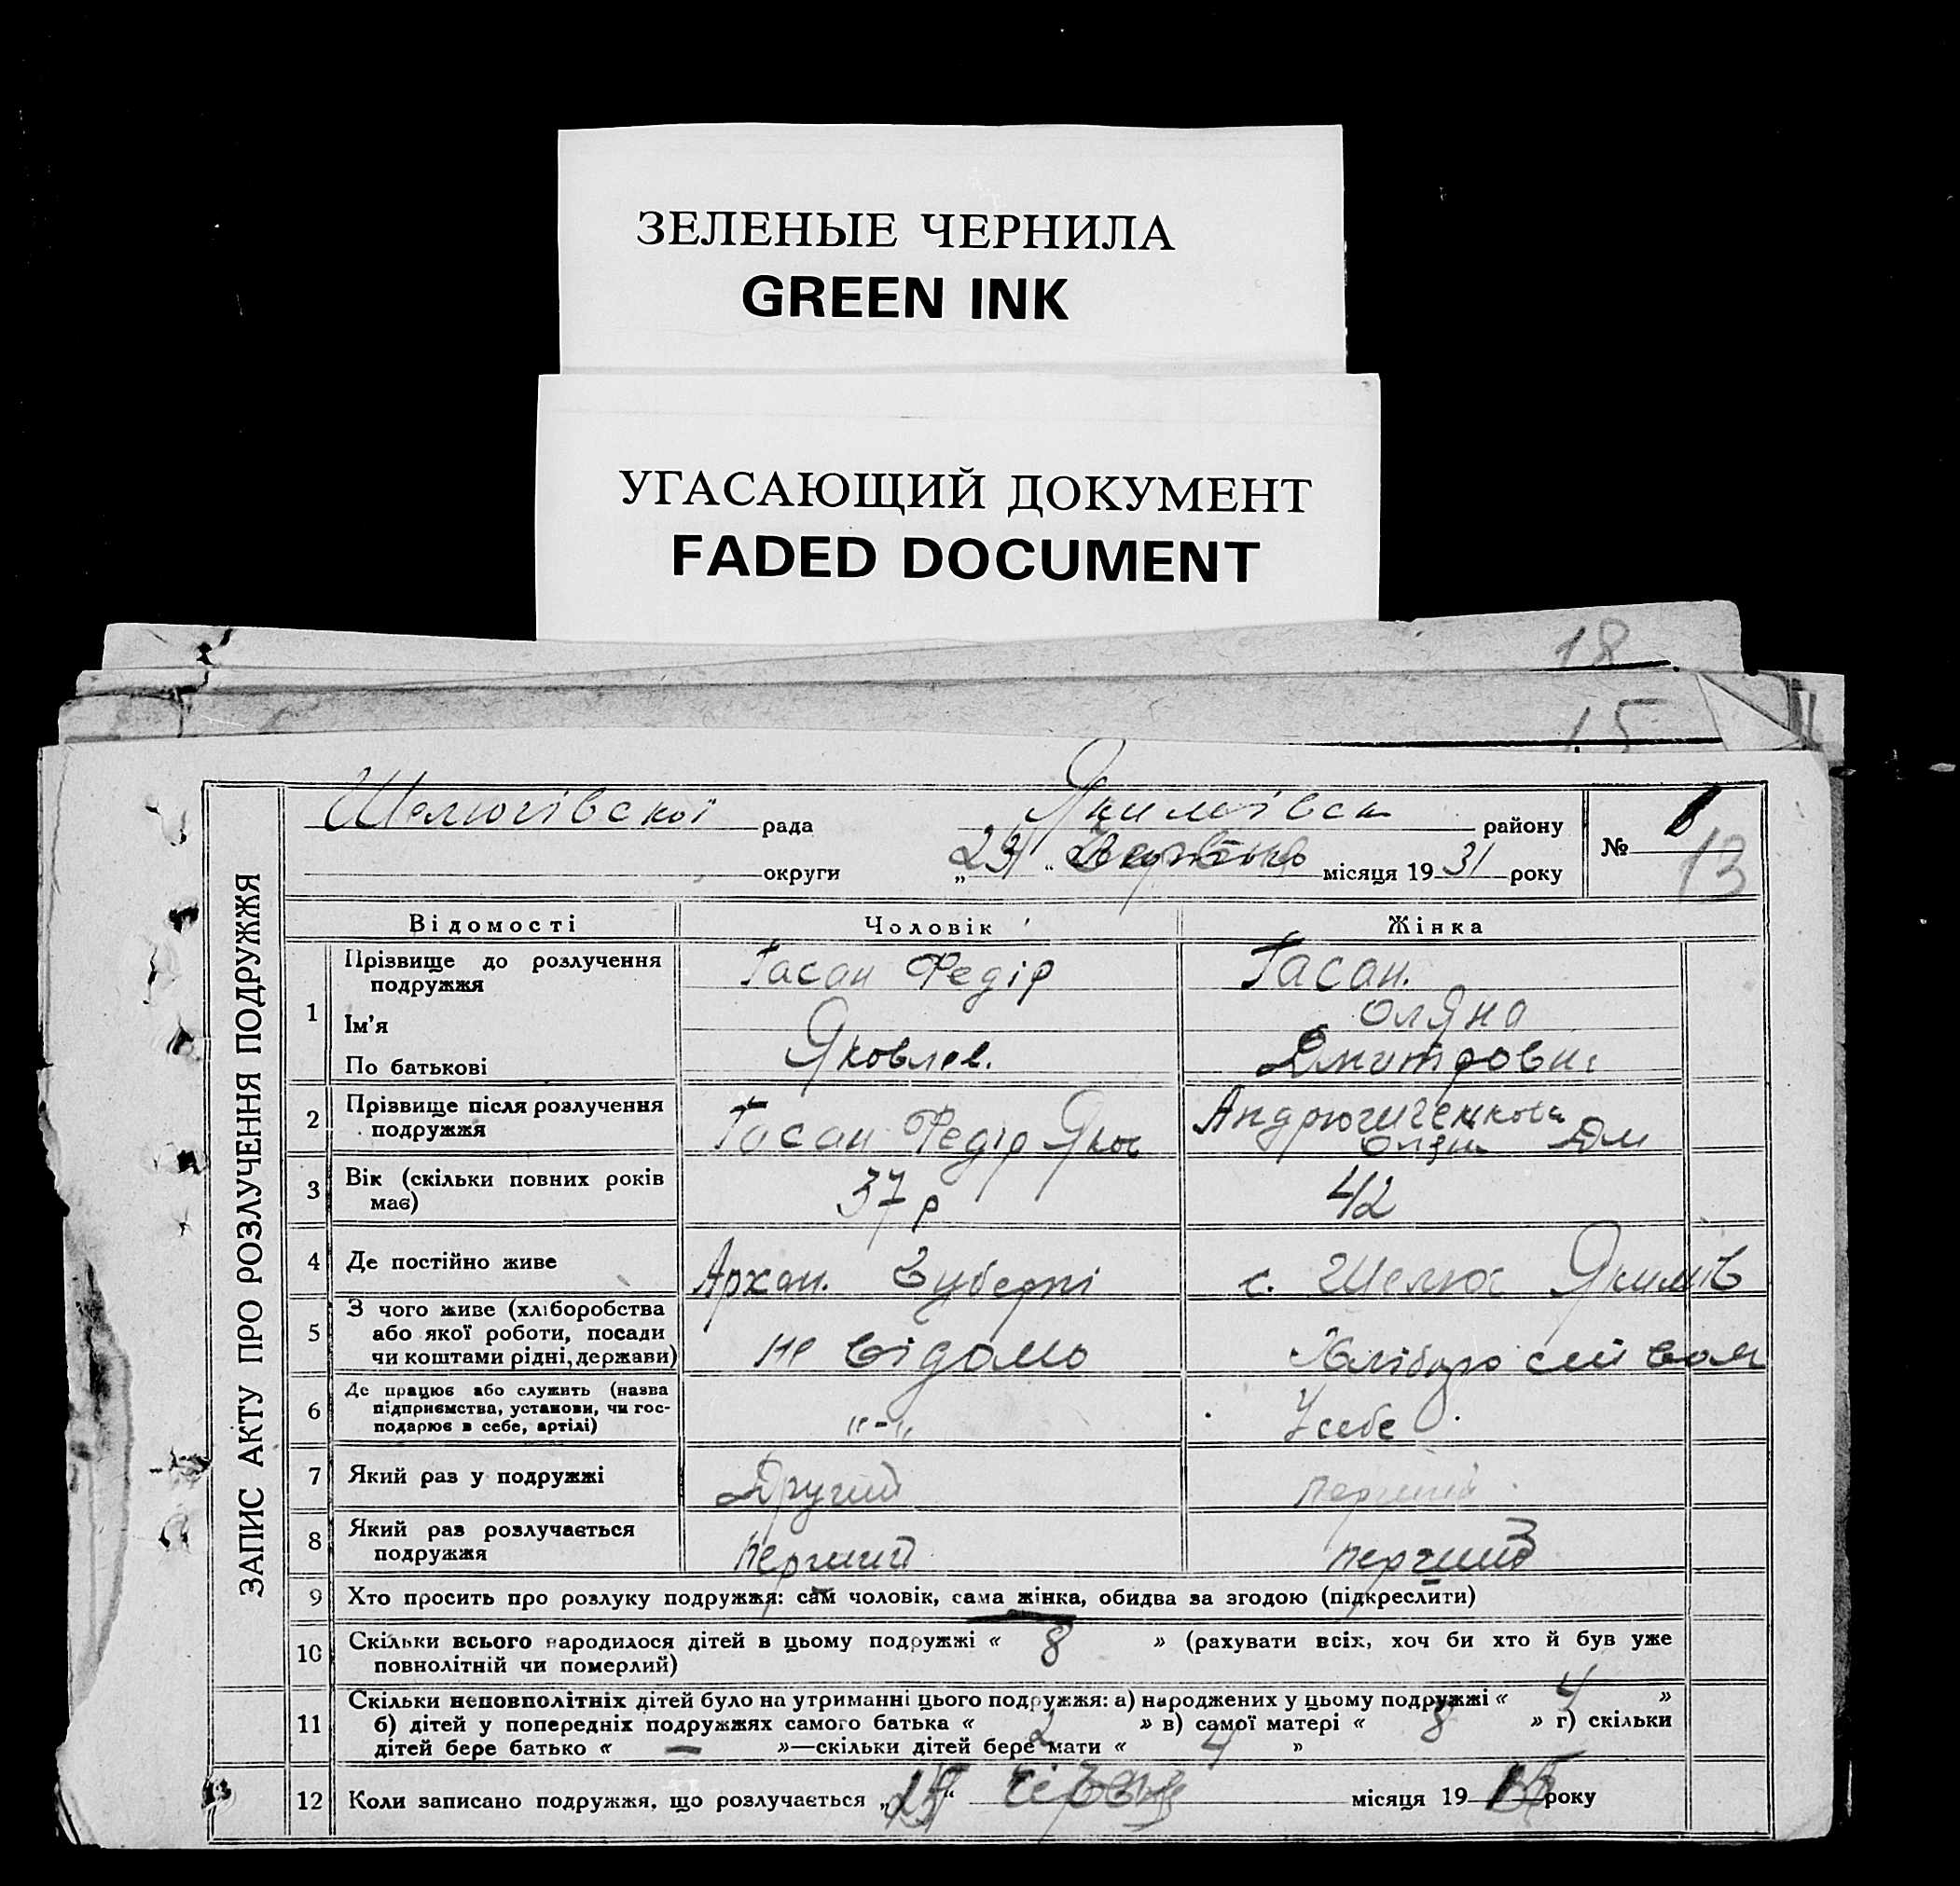 ЗЕЛЕНЫЕ ЧЕРНИЛА
GREEN INK
УГАСАЮЩИЙ ДОКУМЕНТ
FADED DOCUMENT
18
15
ЗАПИС АКТУ ПРО РОЗЛУЧЕННЯ ПОДРУЖЖЯ
Шелюгівської рада Якимівськ району
округи „23“ місяця 1931 року
№ 13
Відомості Чоловік Жінка
1 Прізвище до розлучення подружжя Гасан Федір Гасан.
Ім'я Оляна
По батькові Яковлев. Дмитровна
2 Прізвище після розлучення подружжя Гасан Федір Яков
3 Вік (скільки повних років має) 37 р 42
4 Де постійно живе Архан. Губерні с. Шелюг Якимів
5 З чого живе (хліборобства або якої роботи, посади чи коштами рідні, держави) не відомо
6 Де працює або служить (назва підприємства, установи, чи господарює в себе, артілі) "-" У себе
7 Який раз у подружжі Другий перший
8 Який раз розлучається подружжя перший перший
9 Хто просить про розлуку подружжя: сам чоловік, сама жінка, обидва за згодою (підкреслити)
10 Скільки всього народилося дітей в цьому подружжі « 8 » (рахувати всіх, хоч би хто й був уже
повнолітній чи померлий)
11 Скільки неповнолітніх дітей було на утриманні цього подружжя: а) народжених у цьому подружжі « 4 »
б) дітей у попередніх подружжях самого батька « 2 » в) самої матері « 8 » г) скільки
дітей бере батько « — »—скільки дітей бере мати « 4 »
12 Коли записано подружжя, що розлучається місяця 19 року